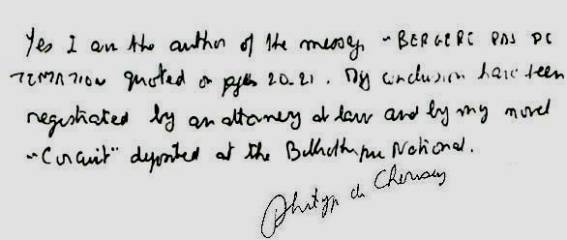 Yes I am the author of the message "BERGERE PAS DE
TEMATION quoted on pages 20-21. My conclusion have been
registrated by an attorney at law and by my novel
"Circuit" deposited at the National.
Philippe de Cherisey